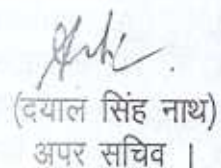 (दयाल सिंह नाथ)
अपर सचिव ।